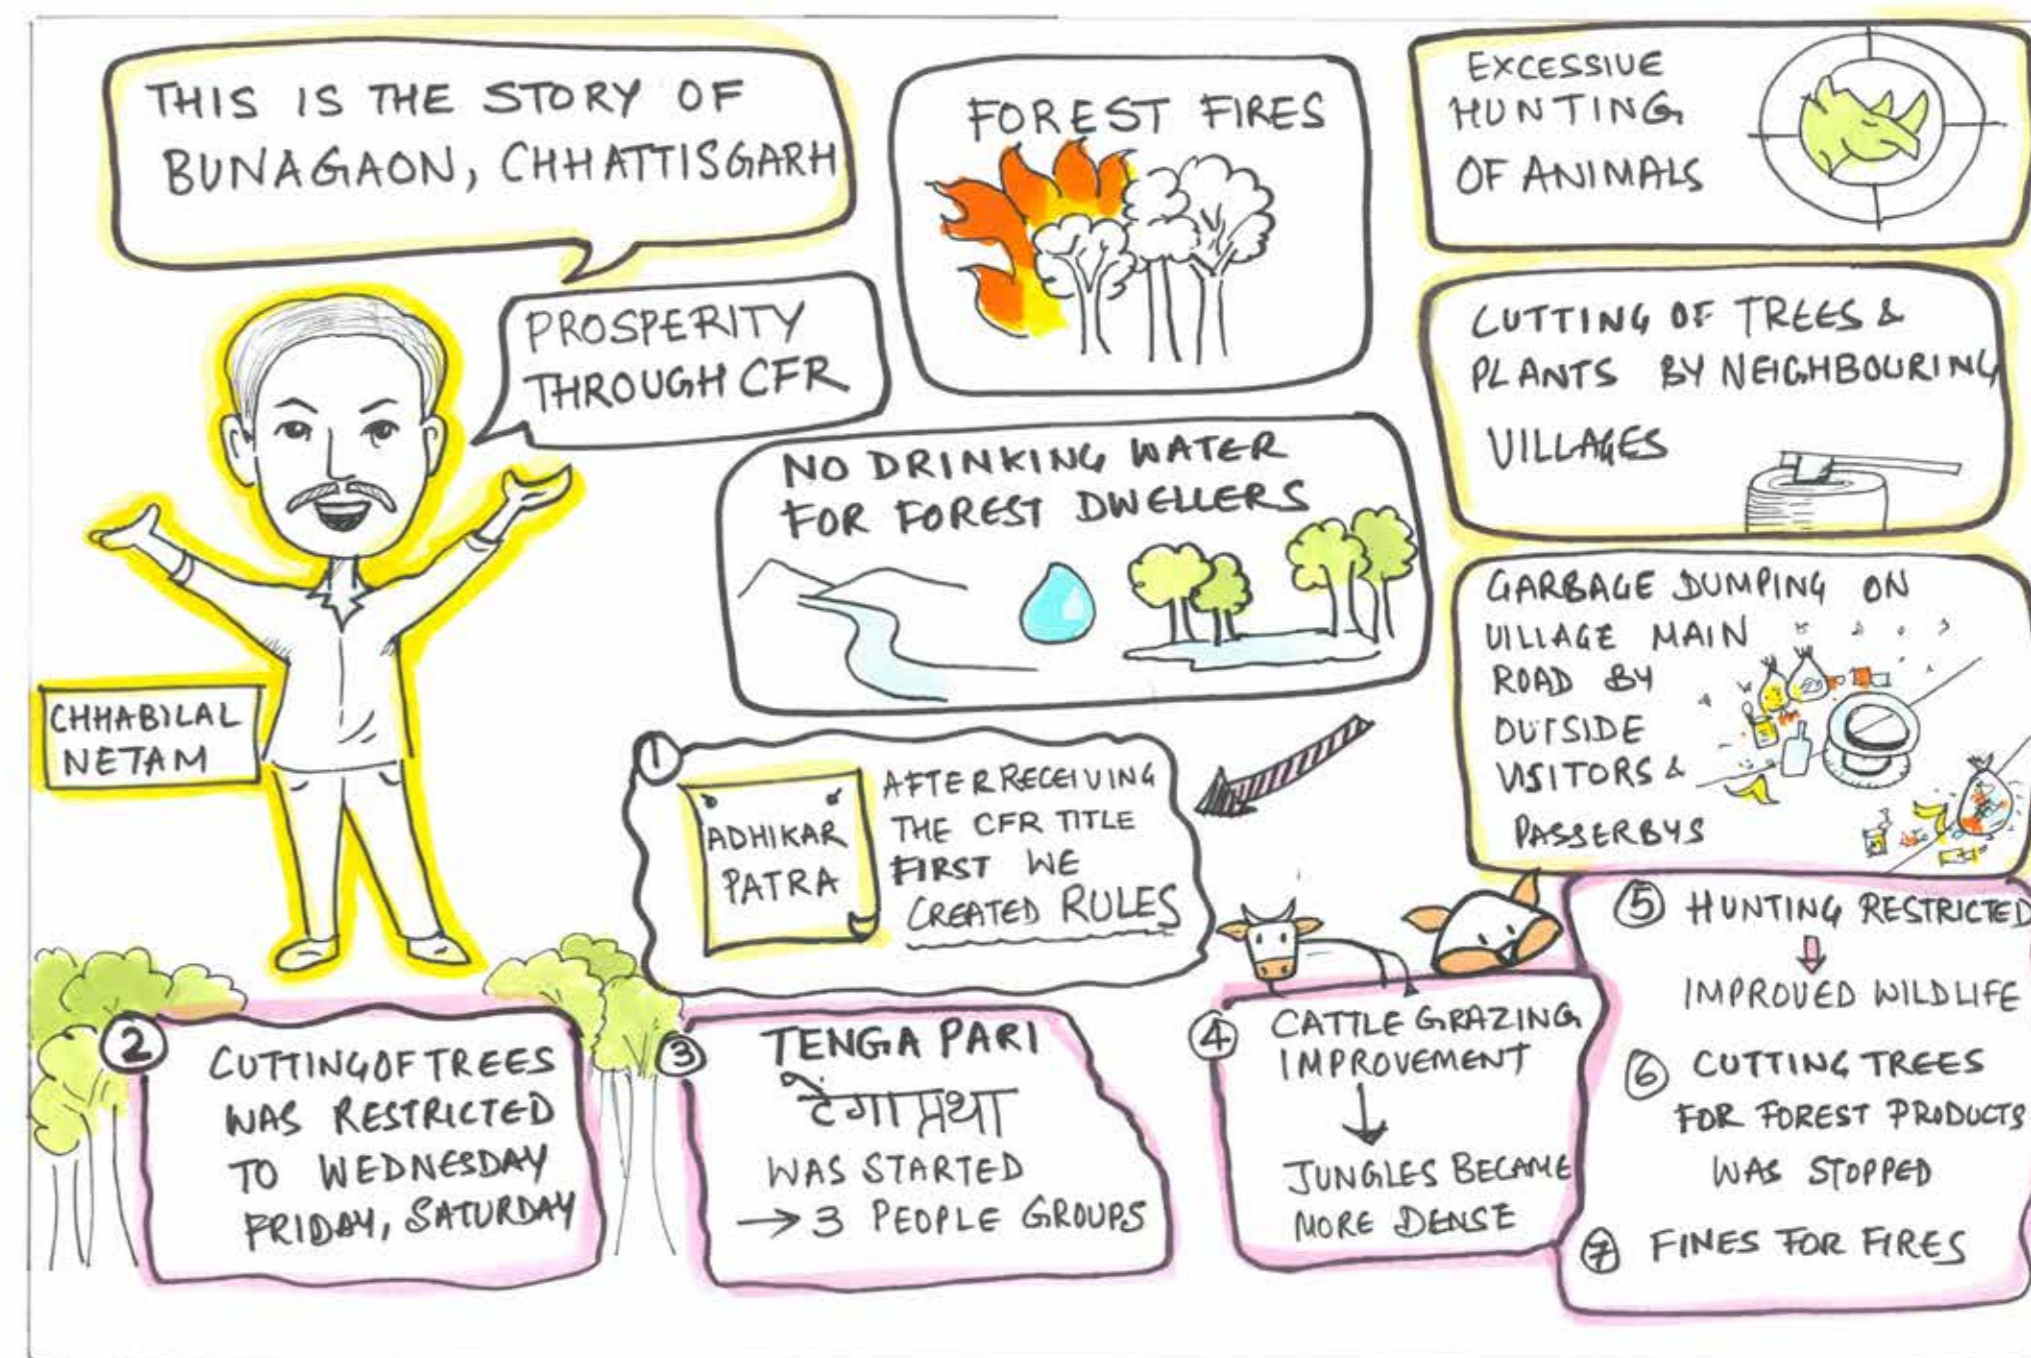 THIS IS THE STORY OF
BUNAGAON, CHHATTISGARH
PROSPERITY
THROUGH CFR
CHHABILAL
NETAM
FOREST FIRES
NO DRINKING WATER
FOR FOREST DWELLERS
EXCESSIVE
HUNTING
OF ANIMALS
CUTTING OF TREES &
PLANTS BY NEIGHBOURING
VILLAGES
GARBAGE DUMPING ON
VILLAGE MAIN
ROAD BY
OUTSIDE
VISITORS &
PASSERBYS
1
ADHIKAR
PATRA
AFTER RECEIVING
THE CFR TITLE
FIRST WE
CREATED RULES
2
CUTTING OF TREES
WAS RESTRICTED
TO WEDNESDAY
FRIDAY, SATURDAY
3
TENGA PARI
टेंगा प्रथा
WAS STARTED
→ 3 PEOPLE GROUPS
4
CATTLE GRAZING
IMPROVEMENT
↓
JUNGLES BECAME
MORE DENSE
5 HUNTING RESTRICTED
⇩
IMPROVED WILDLIFE
6 CUTTING TREES
FOR FOREST PRODUCTS
WAS STOPPED
7 FINES FOR FIRES